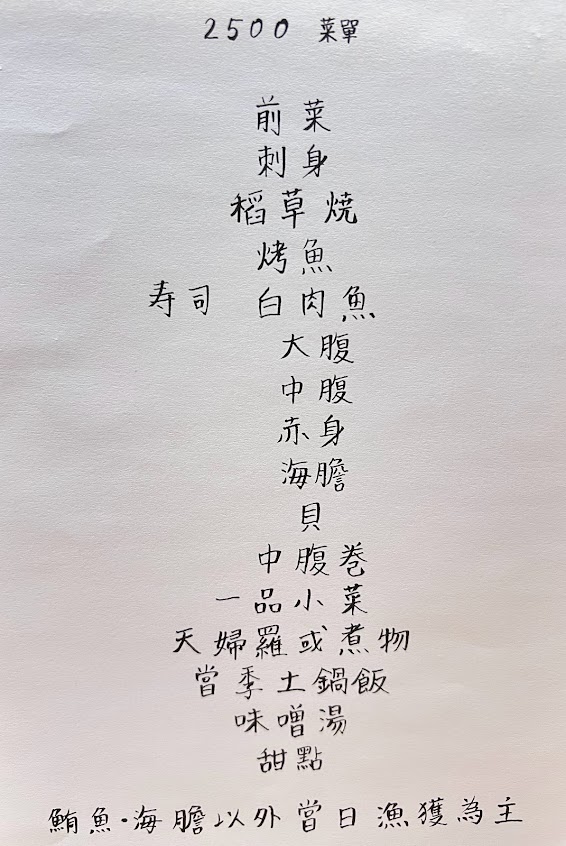 2500 菜單
前菜
刺身
稻草焼
烤魚
寿司 白肉魚
大腹
中腹
赤身
海膽
貝
中腹巻
一品小菜
天婦羅或煮物
當季土鍋飯
味噌湯
甜點
鮪魚·海膽以外當日漁獲為主